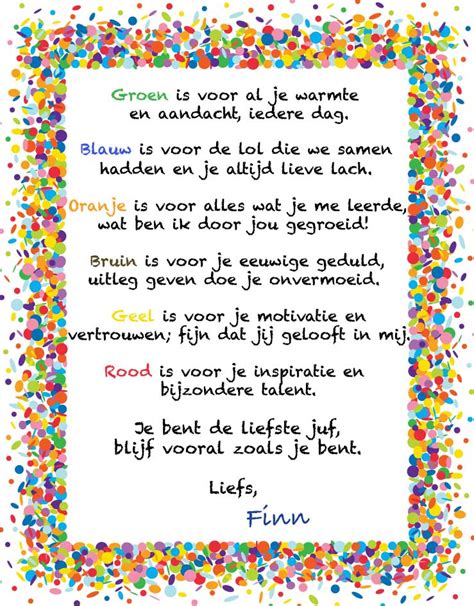 Groen is voor al je warmte
en aandacht, iedere dag.
Blauw is voor de lol die we samen
hadden en je altijd lieve lach.
Oranje is voor alles wat je me leerde,
wat ben ik door jou gegroeid!
Bruin is voor je eeuwige geduld,
uitleg geven doe je onvermoeid.
Geel is voor je motivatie en
vertrouwen; fijn dat jij gelooft in mij.
Rood is voor je inspiratie en
bijzondere talent.
Je bent de liefste juf,
blijf vooral zoals je bent.
Liefs,
Finn